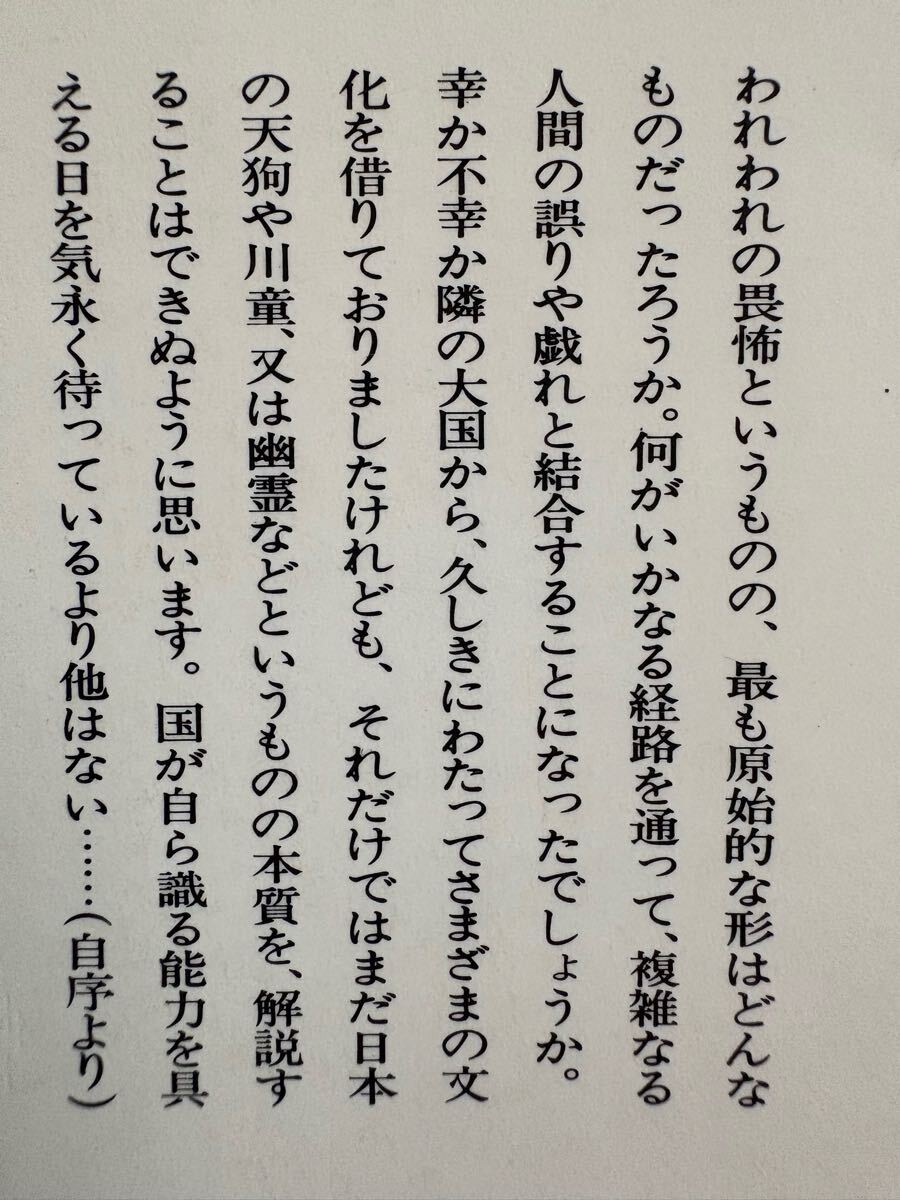 われわれの畏怖というものの、最も原始的な形はどんな
ものだったろうか。何がいかなる経路を通って、複雑なる
人間の誤りや戯れと結合することになったでしょうか。
幸か不幸か隣の大国から、久しきにわたってさまざまの文
化を借りておりましたけれども、それだけではまだ日本
の天狗や川童、又は幽霊などというものの本質を、解説す
ることはできぬように思います。国が自ら識る能力を具
える日を気永く待っているより他はない……（自序より）